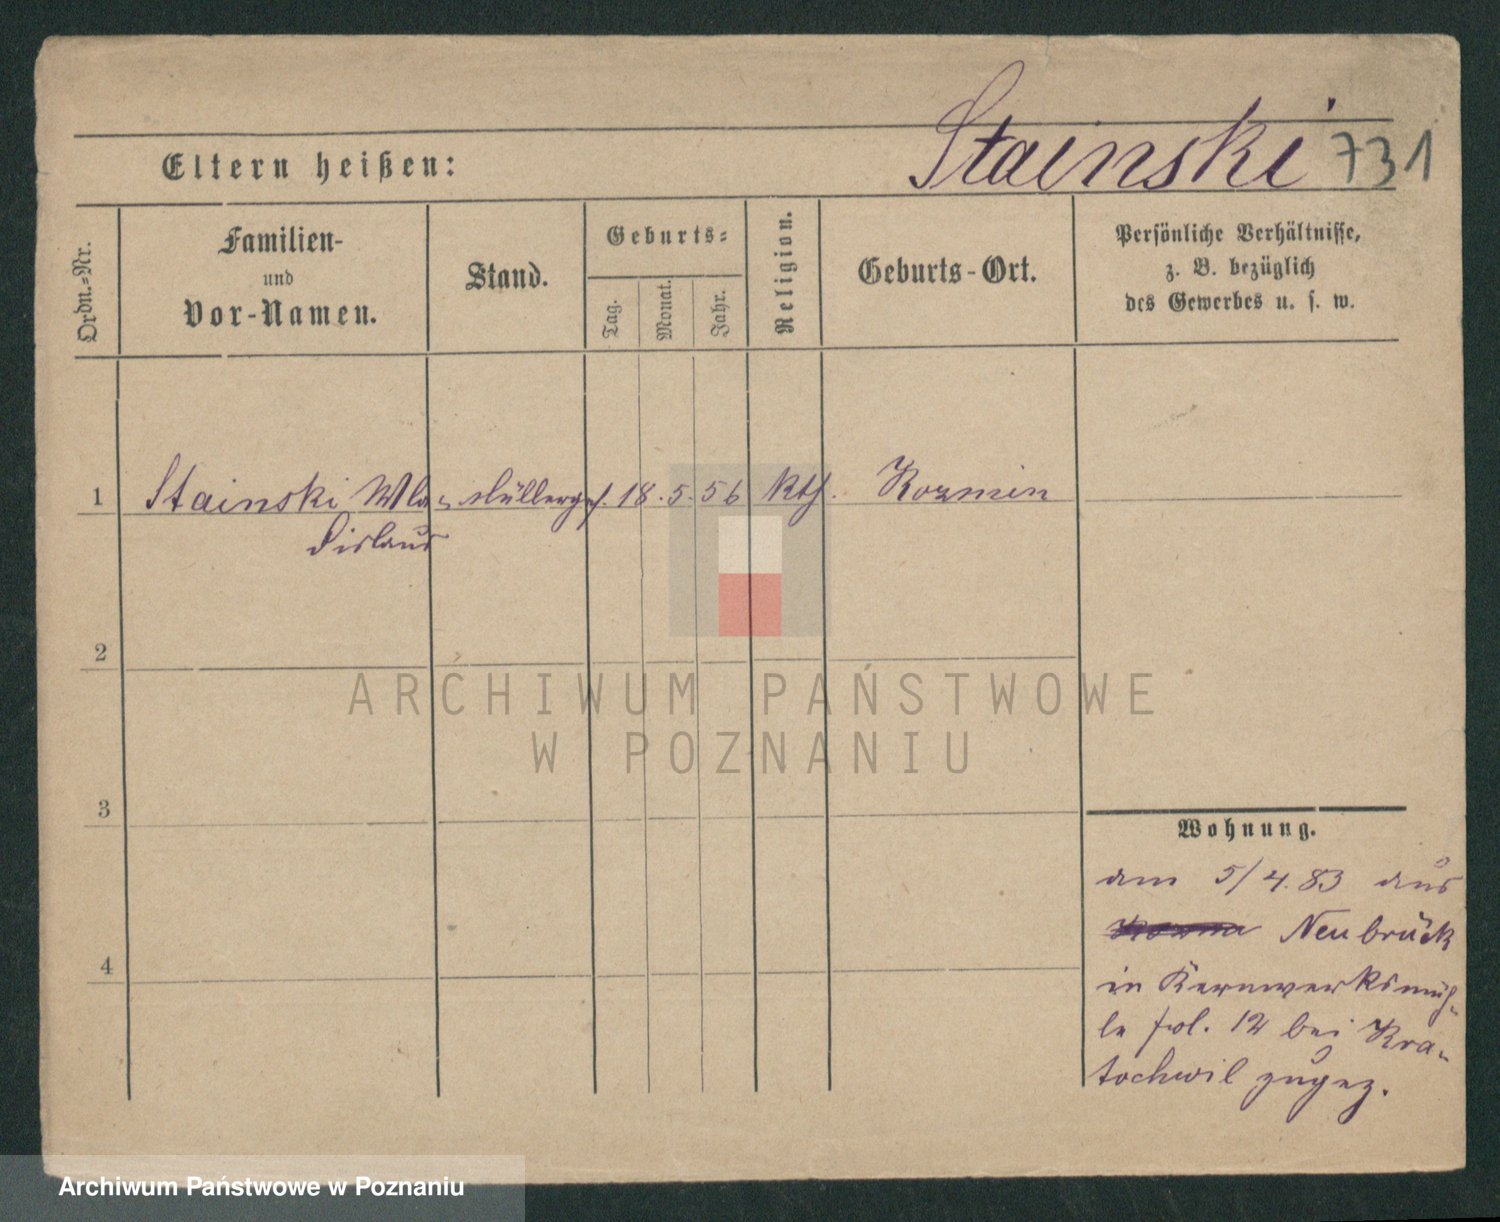 Stainski 731
Eltern heißen:
Ordn.-Nr.
Familien-
und
Vor-Namen.
Stand.
Geburts-
Tag.
Monat.
Jahr.
Religion.
Geburts-Ort.
Persönliche Verhältnisse,
z. B. bezüglich
des Gewerbes u. s. w.
1 Stainski Wla- Müllerges. 18. 5. 56 kth. Kozmin
dislaus
2
3
4
Wohnung.
am 5/4. 83 aus
Neubrück
in Kernwerksmüh-
le pol. 12 bei Kra-
tochwil zugez.
ARCHIWUM PAŃSTWOWE
W POZNANIU
Archiwum Państwowe w Poznaniu